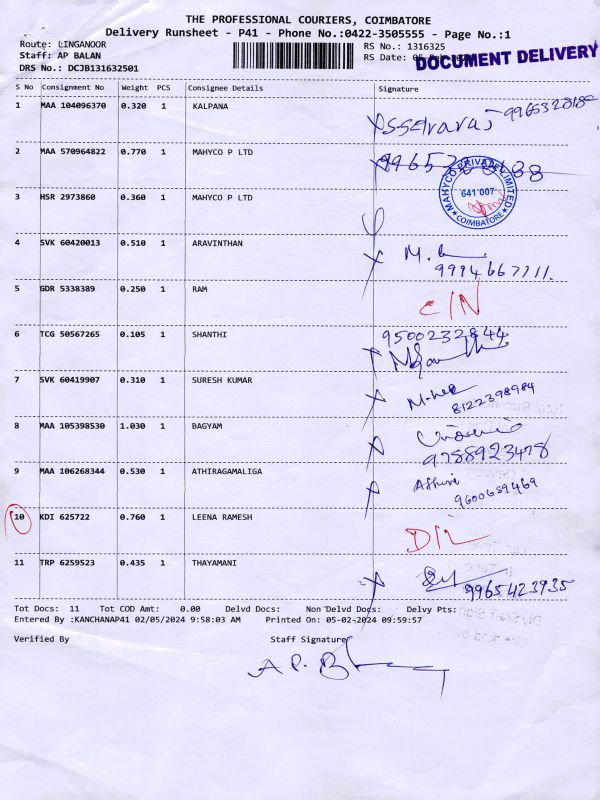 THE PROFESSIONAL COURIERS, COIMBATORE
Delivery Runsheet - P41 - Phone No.:0422-3505555 - Page No.:1
Route: LINGANOOR RS No.: 1316325
Staff: AP BALAN RS Date: 05
DOCUMENT DELIVERY
DRS No.: DCJB131632501
S No Consignment No Weight PCS Consignee Details Signature
1 MAA 104096370 0.320 1 KALPANA
2 MAA 570964822 0.770 1 MAHYCO P LTD
MAHYCO PRIVATE LIMITED
641 007
COIMBATORE
3 HSR 2973860 0.360 1 MAHYCO P LTD
4 SVK 60420013 0.510 1 ARAVINTHAN
5 GDR 5338389 0.250 1 RAM
C/N
6 TCG 50567265 0.105 1 SHANTHI
9500232844
7 SVK 60419907 0.310 1 SURESH KUMAR
8122398984
8 MAA 105398530 1.030 1 BAGYAM
9788923478
9 MAA 106268344 0.530 1 ATHIRAGAMALIGA
9600689469
10 KDI 625722 0.760 1 LEENA RAMESH
D/L
11 TRP 6259523 0.435 1 THAYAMANI
9965423935
Tot Docs: 11 Tot COD Amt: 0.00 Delvd Docs: Non Delvd Docs: Delvy Pts:
Entered By :KANCHANAP41 02/05/2024 9:58:03 AM Printed On: 05-02-2024 09:59:57
Verified By Staff Signature
A.P.